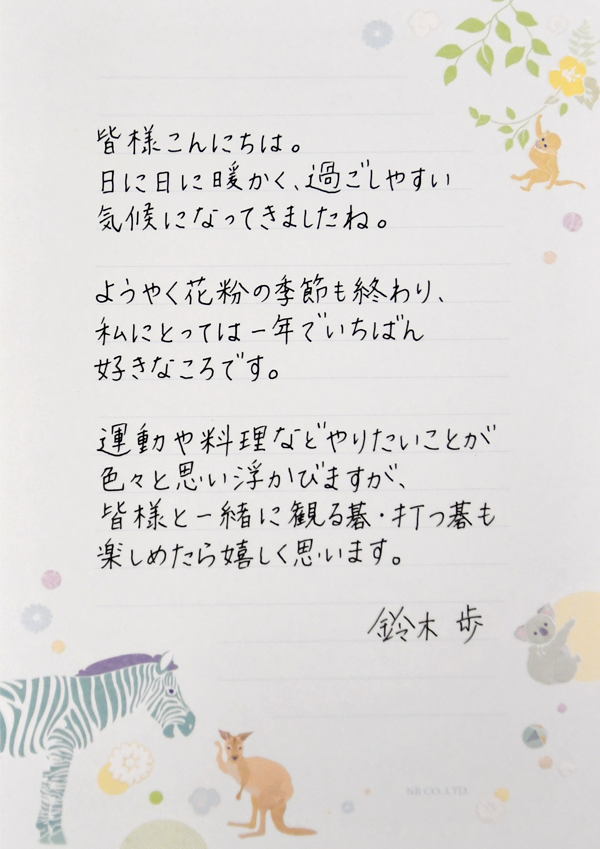 皆様こんにちは。
日に日に暖かく、過ごしやすい
気候になってきましたね。
ようやく花粉の季節も終わり、
私にとっては一年でいちばん
好きなころです。
運動や料理などやりたいことが
色々と思い浮かびますが、
皆様と一緒に観る碁・打つ碁も
楽しめたら嬉しく思います。
鈴木 歩
NB CO., LTD.